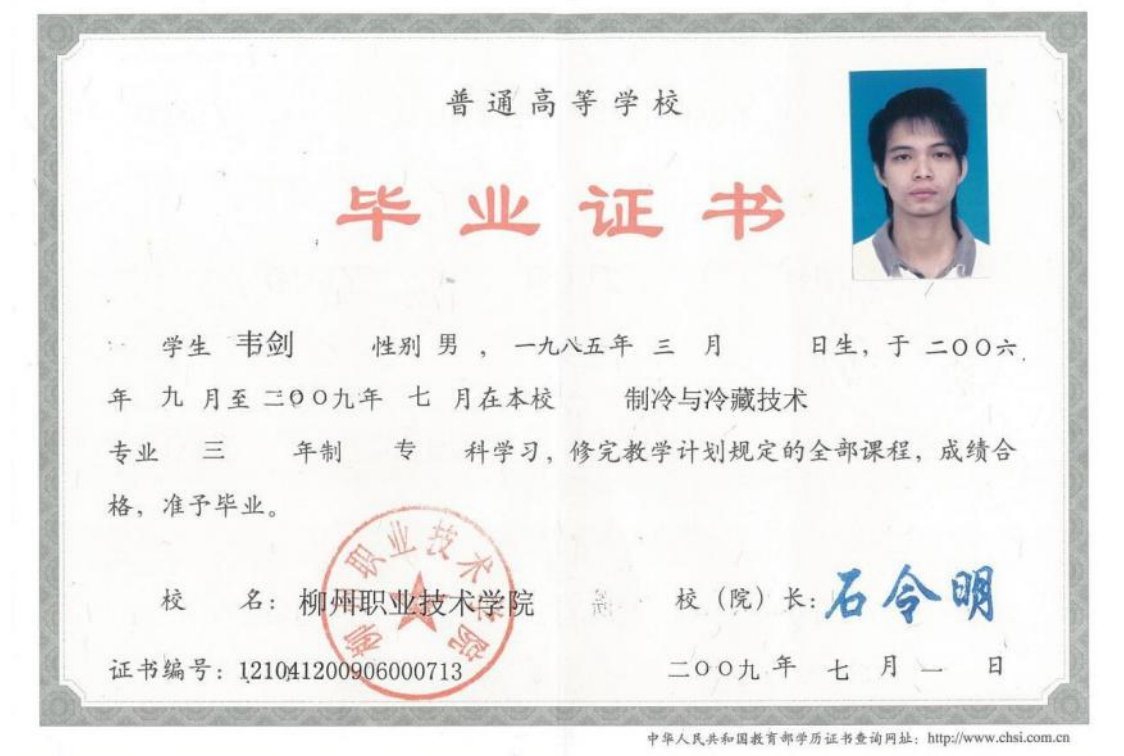 普通高等学校
毕业证书
学生 韦剑 性别 男 ，一九八五年 三 月 日生，于 二〇〇六
年 九 月至 二〇〇九年 七 月在本校 制冷与冷藏技术
专业 三 年制 专 科学习，修完教学计划规定的全部课程，成绩合
格，准予毕业。
柳州职业技术学院
校 名：柳州职业技术学院 校（院）长：石令明
证书编号：121041200906000713 二〇〇九 年 七 月 一 日
中华人民共和国教育部学历证书查询网址：http://www.chsi.com.cn